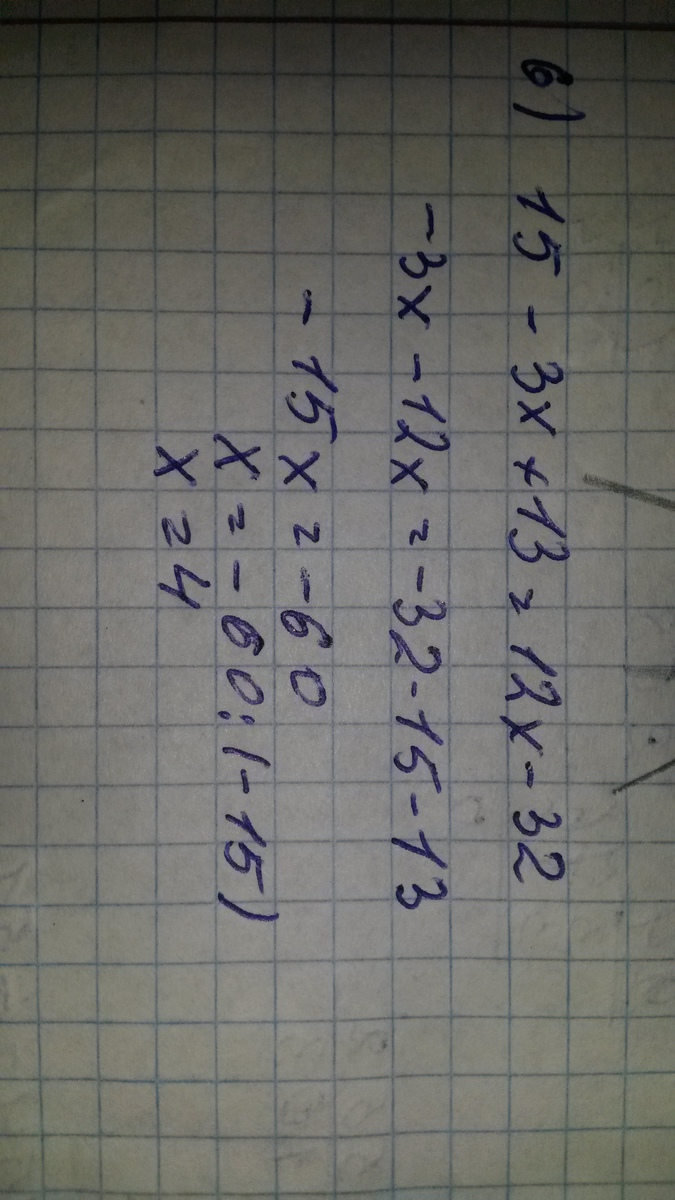 в) 15 - 3x + 13 = 12x - 32
-3x - 12x = -32 - 15 - 13
- 15x = -60
x = -60 : (-15)
x = 4